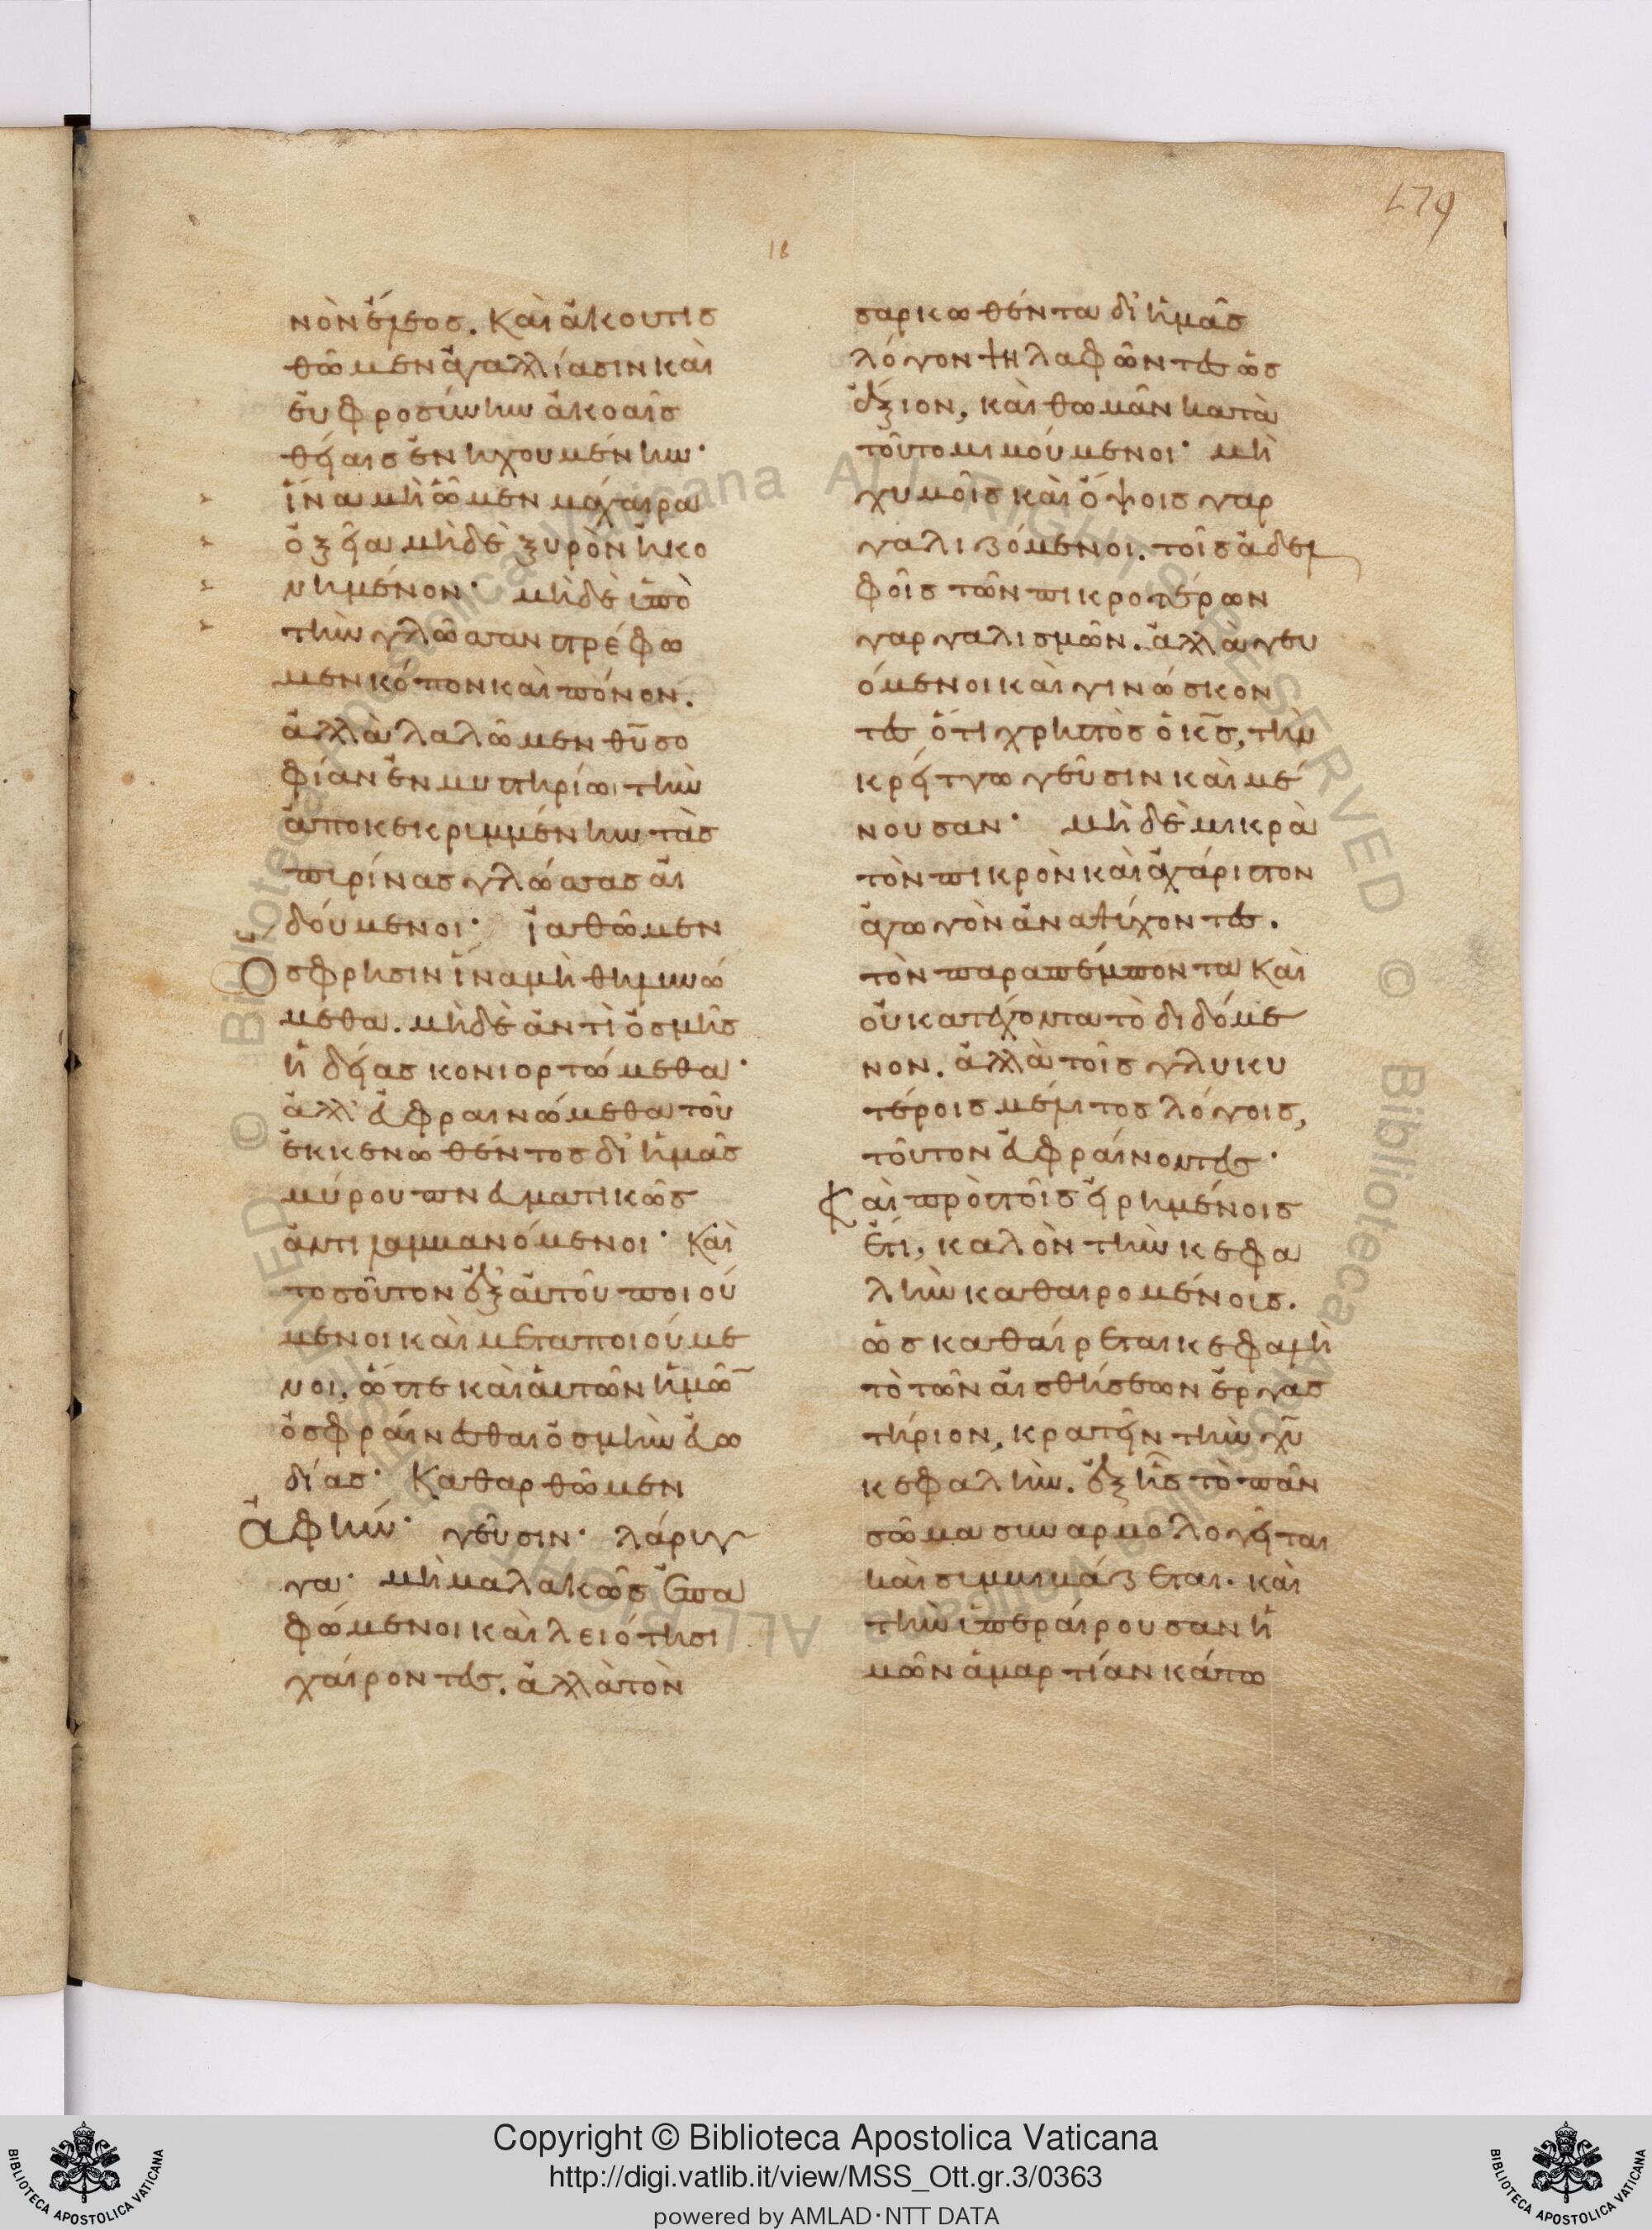 179
18
νὸν ἔλεος. Καὶ ἀκουτισ
θῶμεν ἀγαλλίασιν καὶ
εὐφροσύνην ἀκοαῖς
θείαις ἐνηχουμένην·
ἵνα μὴ ὦμεν μάχαιρα
ὀξεῖα μηδὲ ξυρὸν ἠκο
νημένον· μηδὲ ὑπὸ
τὴν γλῶτταν στρέφω
μεν κόπον καὶ πόνον.
ἀλλὰ λαλῶμεν θυ σο
φίαν ἐν μυστηρίωι τὴν
ἀποκεκριμμένην τὰς
πυρίνας γλώττας αἰ
δούμενοι· ἰαθῶμεν
ὄσφρησιν ἵνα μὴ θηλυνώ
μεθα. μηδὲ ἀντὶ ὀσμῆς
ἡδείας κονιορτώμεθα·
ἀλλ' ὀσφραινώμεθα τοῦ
ἐκκενωθέντος δι' ἡμᾶς
μύρου πνευματικῶς
ἀντιλαμβανόμενοι· Καὶ
τοσοῦτον ἐξ αὐτοῦ ποιού
μενοι καὶ μεταποιούμε
νοι, ὥστε καὶ αὐτῶν ἡμῶ
ὀσφραίνεσθαι ὀσμὴν εὐω
δίας· Καθαρθῶμεν
ἁφὴν· γεῦσιν· λάρυγ
γα· μὴ μαλακῶς ἐπα
φώμενοι καὶ λειότησι
χαίροντες. ἀλλὰ τὸν
σαρκωθέντα δι' ἡμᾶς
λόγον ψηλαφῶντες ὡς
ἄξιον, καὶ θωμᾶν κατὰ
τοῦτο μιμούμενοι· μὴ
χυμοῖς καὶ ὄψοις γαρ
γαλιζόμενοι. τοῖς ἀδελ
φοῖς τῶν πικροτέρων
γαργαλισμῶν. ἀλλὰ γευ
όμενοι καὶ γινώσκον
τες ὅτι χρηστὸς ὁ κς, τὴν
κρείττω γεῦσιν καὶ μέ
νουσαν· μηδὲ μικρὰ
τὸν πικρὸν καὶ ἀχάριστον
ἀγωγὸν ἀναψύχοντες.
τὸν παραπέμποντα Καὶ
οὐ κατέχοντα τὸ διδόμε
νον. ἀλλὰ τοῖς γλυκυ
τέροις μέλιτος λόγοις,
τοῦτον εὐφραίνοντες·
Καὶ πρὸς τοῖς εἰρημένοις
ἔτι, καλὸν τὴν κεφα
λὴν καθαιρομένοις.
ὡς καθαίρεται κεφαλὴ
τὸ τῶν αἰσθήσεων ἐργασ
τήριον, κρατεῖν τὴν χυ
κεφαλὴν. ἐξ ἧς τὸ πᾶν
σῶμα συναρμολογεῖται
καὶ συμβιβάζεται. καὶ
τὴν ὑπεραίρουσαν ἡ
μῶν ἁμαρτίαν κάτω
Copyright © Biblioteca Apostolica Vaticana
http://digi.vatlib.it/view/MSS_Ott.gr.3/0363
powered by AMLAD·NTT DATA